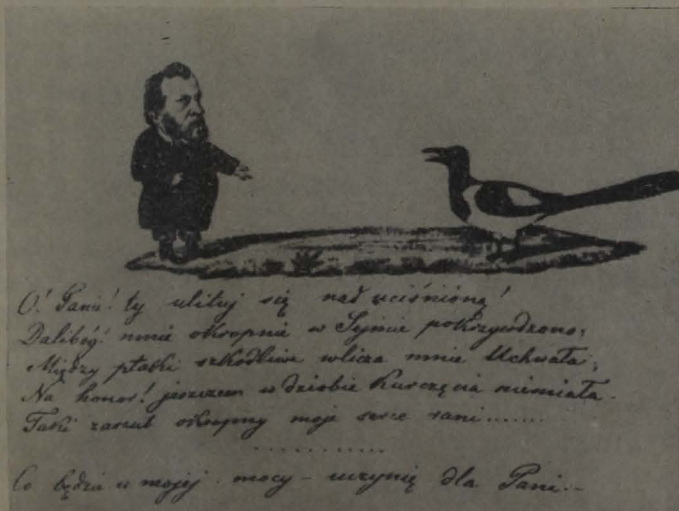 O! Panie! ty ulituj się nad uciśnioną!
Dalibóg! mnie okropnie w Sejmie pokrzywdzono,
Między ptaki szkodliwe wlicza mnie Uchwała,
Na honor! jeszczem w dziobie Kurczęcia niemiała.
Taki zarzut okropny moje serce rani.......
. . . . . . . . . . . .
Co będzie w mojej mocy – uczynię dla Pani...